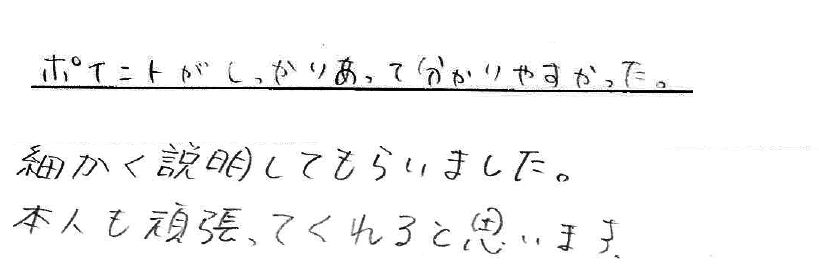 ポイントがしっかりあって分かりやすかった。
細かく説明してもらいました。
本人も頑張ってくれると思います。